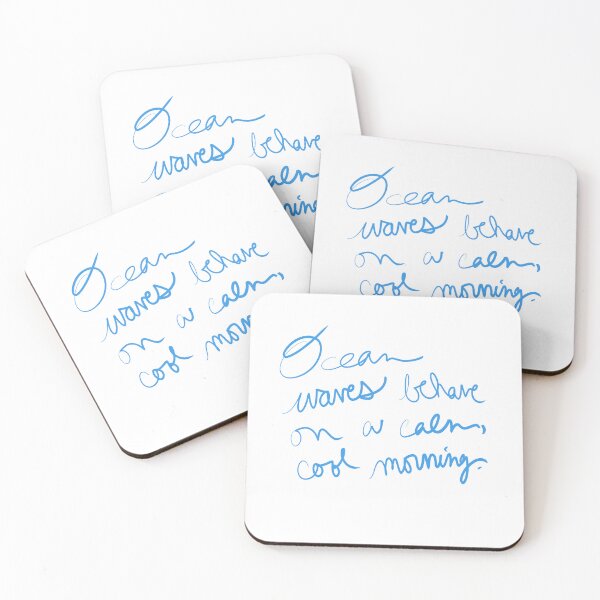 Ocean
waves behave
calm
ning.
Ocean
waves behave
on a calm,
cool morning.
Ocean
waves behave
on a calm,
cool morn
Ocean
waves behave
on a calm,
cool morning.